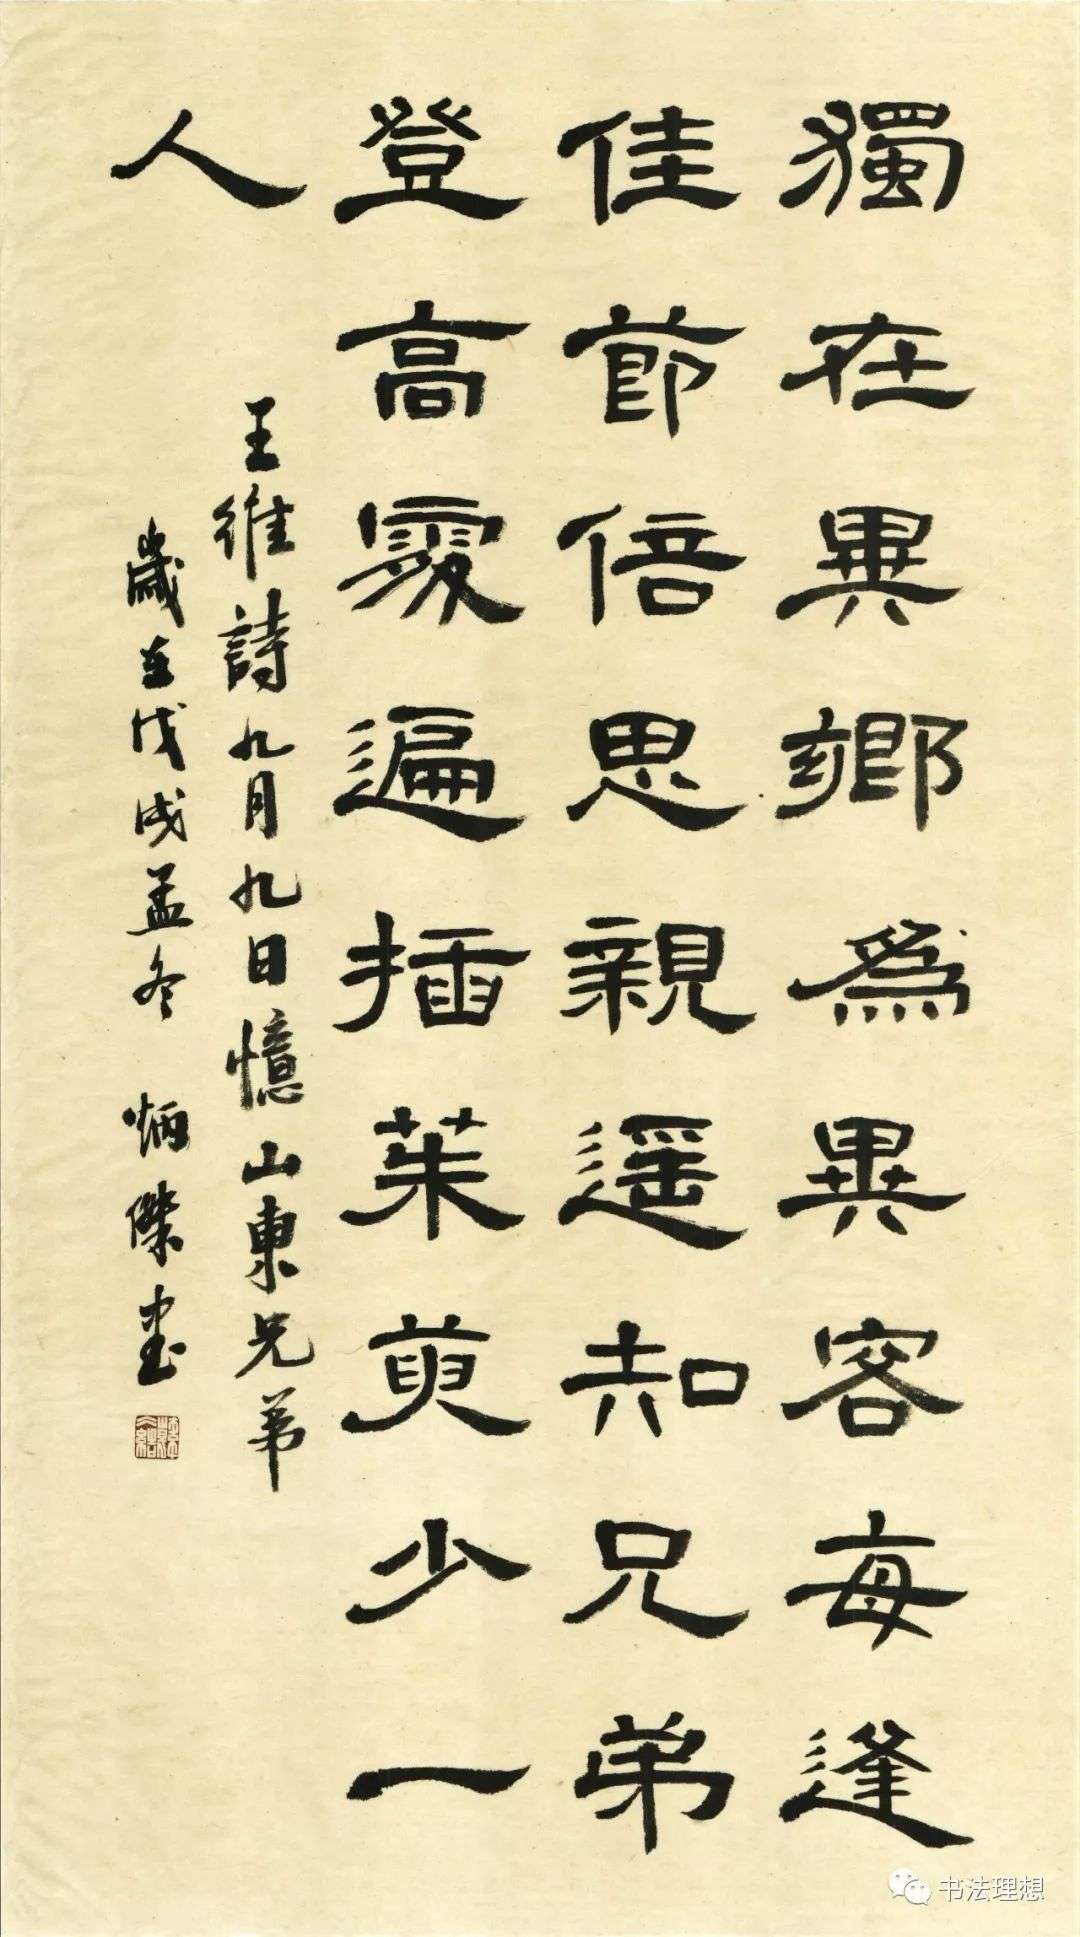 獨在異鄉爲異客每逢
佳節倍思親遥知兄弟
登高處遍插茱萸少一
人
王維詩九月九日憶山東兄弟
歲在戊戌孟冬 炳傑書
书法理想